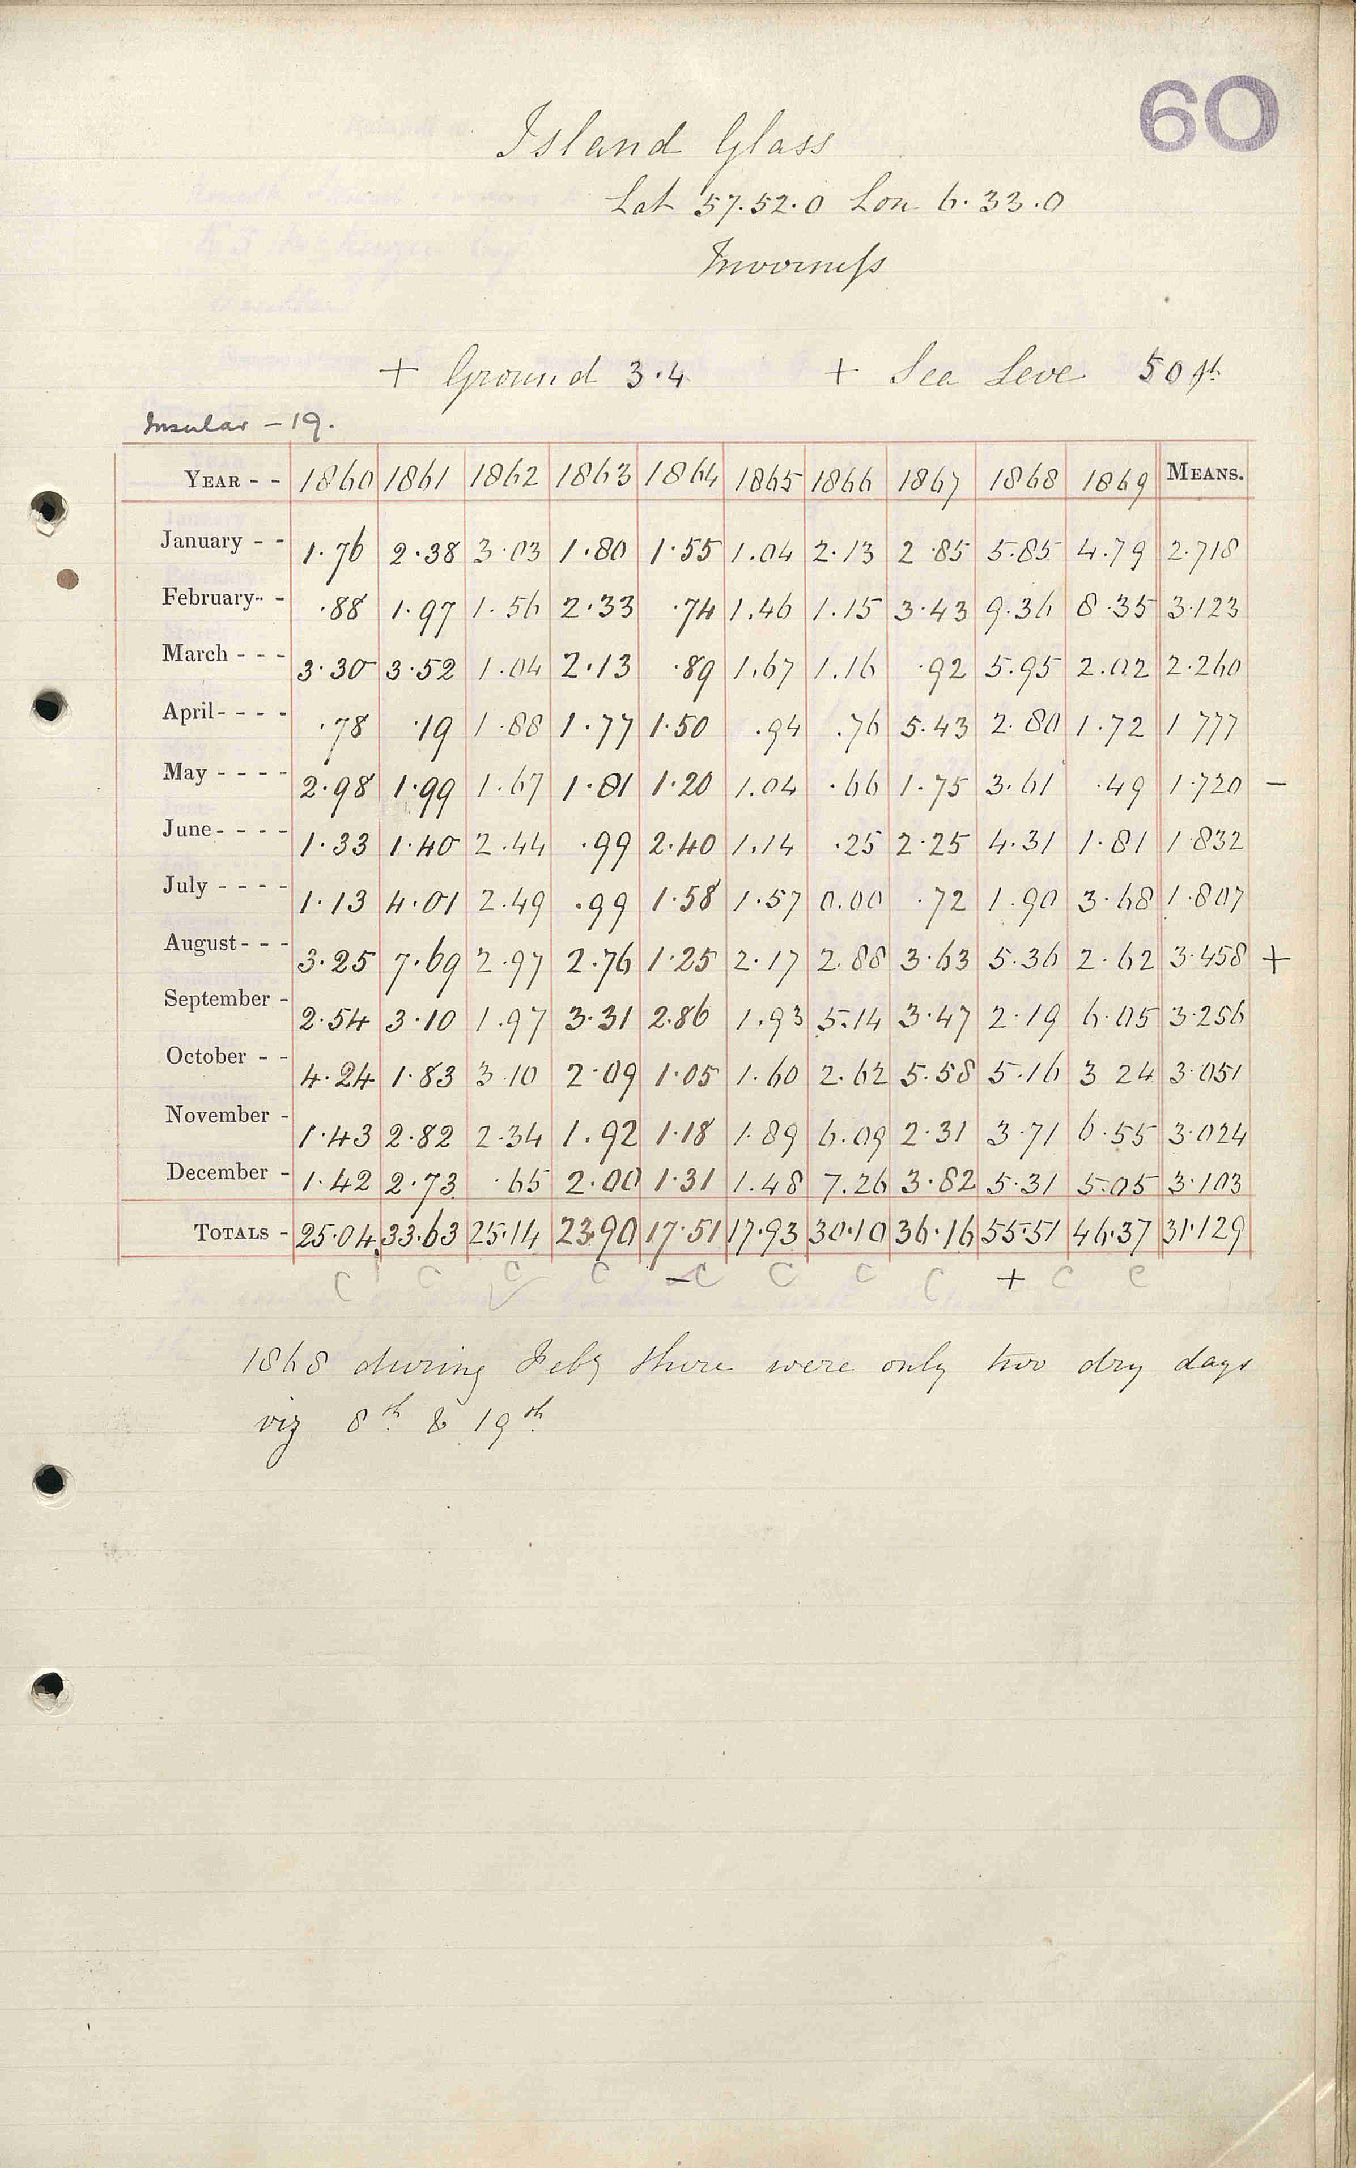 60
Island Glass
Lat 57.52.0 Lon 6.33.0
Inverness
+ Ground 3.4 + Sea Level 50 ft
Insular - 19.
YEAR - - 1860 1861 1862 1863 1864 1865 1866 1867 1868 1869 MEANS.
January - - 1.76 2.38 3.03 1.80 1.55 1.04 2.13 2.85 5.85 4.79 2.718
February - - .88 1.97 1.56 2.33 .74 1.46 1.15 3.43 9.36 8.35 3.123
March - - - 3.30 3.52 1.04 2.13 .89 1.67 1.16 .92 5.95 2.02 2.260
April - - - - .78 .19 1.88 1.77 1.50 .94 .76 5.43 2.80 1.72 1.777
May - - - - 2.98 1.99 1.67 1.81 1.20 1.04 .66 1.75 3.61 .49 1.720 -
June - - - - 1.33 1.40 2.44 .99 2.40 1.14 .25 2.25 4.31 1.81 1.832
July - - - - 1.13 4.01 2.49 .99 1.58 1.57 0.00 .72 1.90 3.68 1.807
August - - - 3.25 7.69 2.97 2.76 1.25 2.17 2.88 3.63 5.36 2.62 3.458 +
September - 2.54 3.10 1.97 3.31 2.86 1.93 5.14 3.47 2.19 6.05 3.256
October - - 4.24 1.83 3.10 2.09 1.05 1.60 2.62 5.58 5.16 3.24 3.051
November - 1.43 2.82 2.34 1.92 1.18 1.89 6.09 2.31 3.71 6.55 3.024
December - 1.42 2.73 .65 2.00 1.31 1.48 7.26 3.82 5.31 5.05 3.103
TOTALS - 25.04 33.63 25.14 23.90 17.51 17.93 30.10 36.16 55.51 46.37 31.129
C C C C - C C C C + C C
1868 during Feby there were only two dry days
viz 8th & 19th